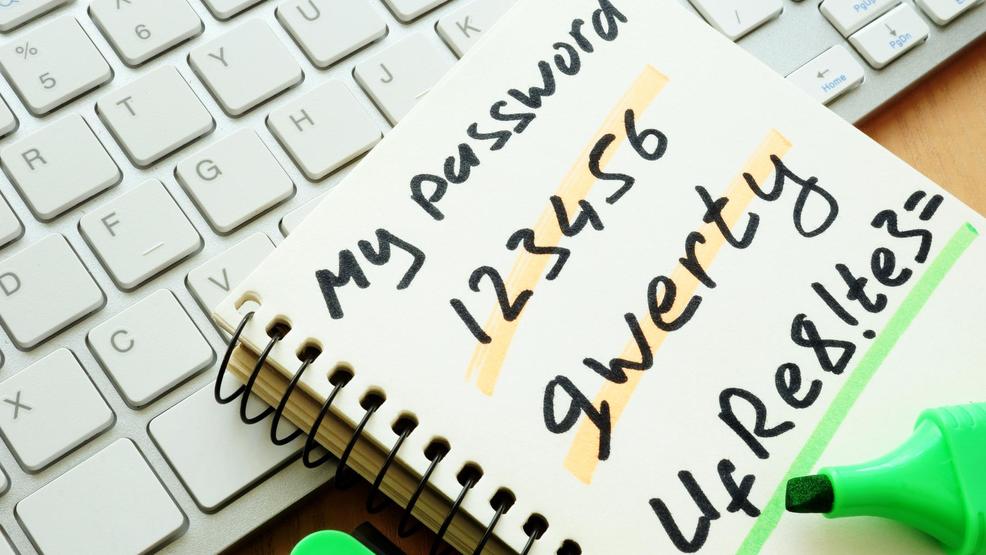 My password
123456
qwerty
UfRe8!te3=
6
U
K
%
5
Y
J
T
H
R
G
F
D
V
C
X
/
PgUp
PgDn
End
Home